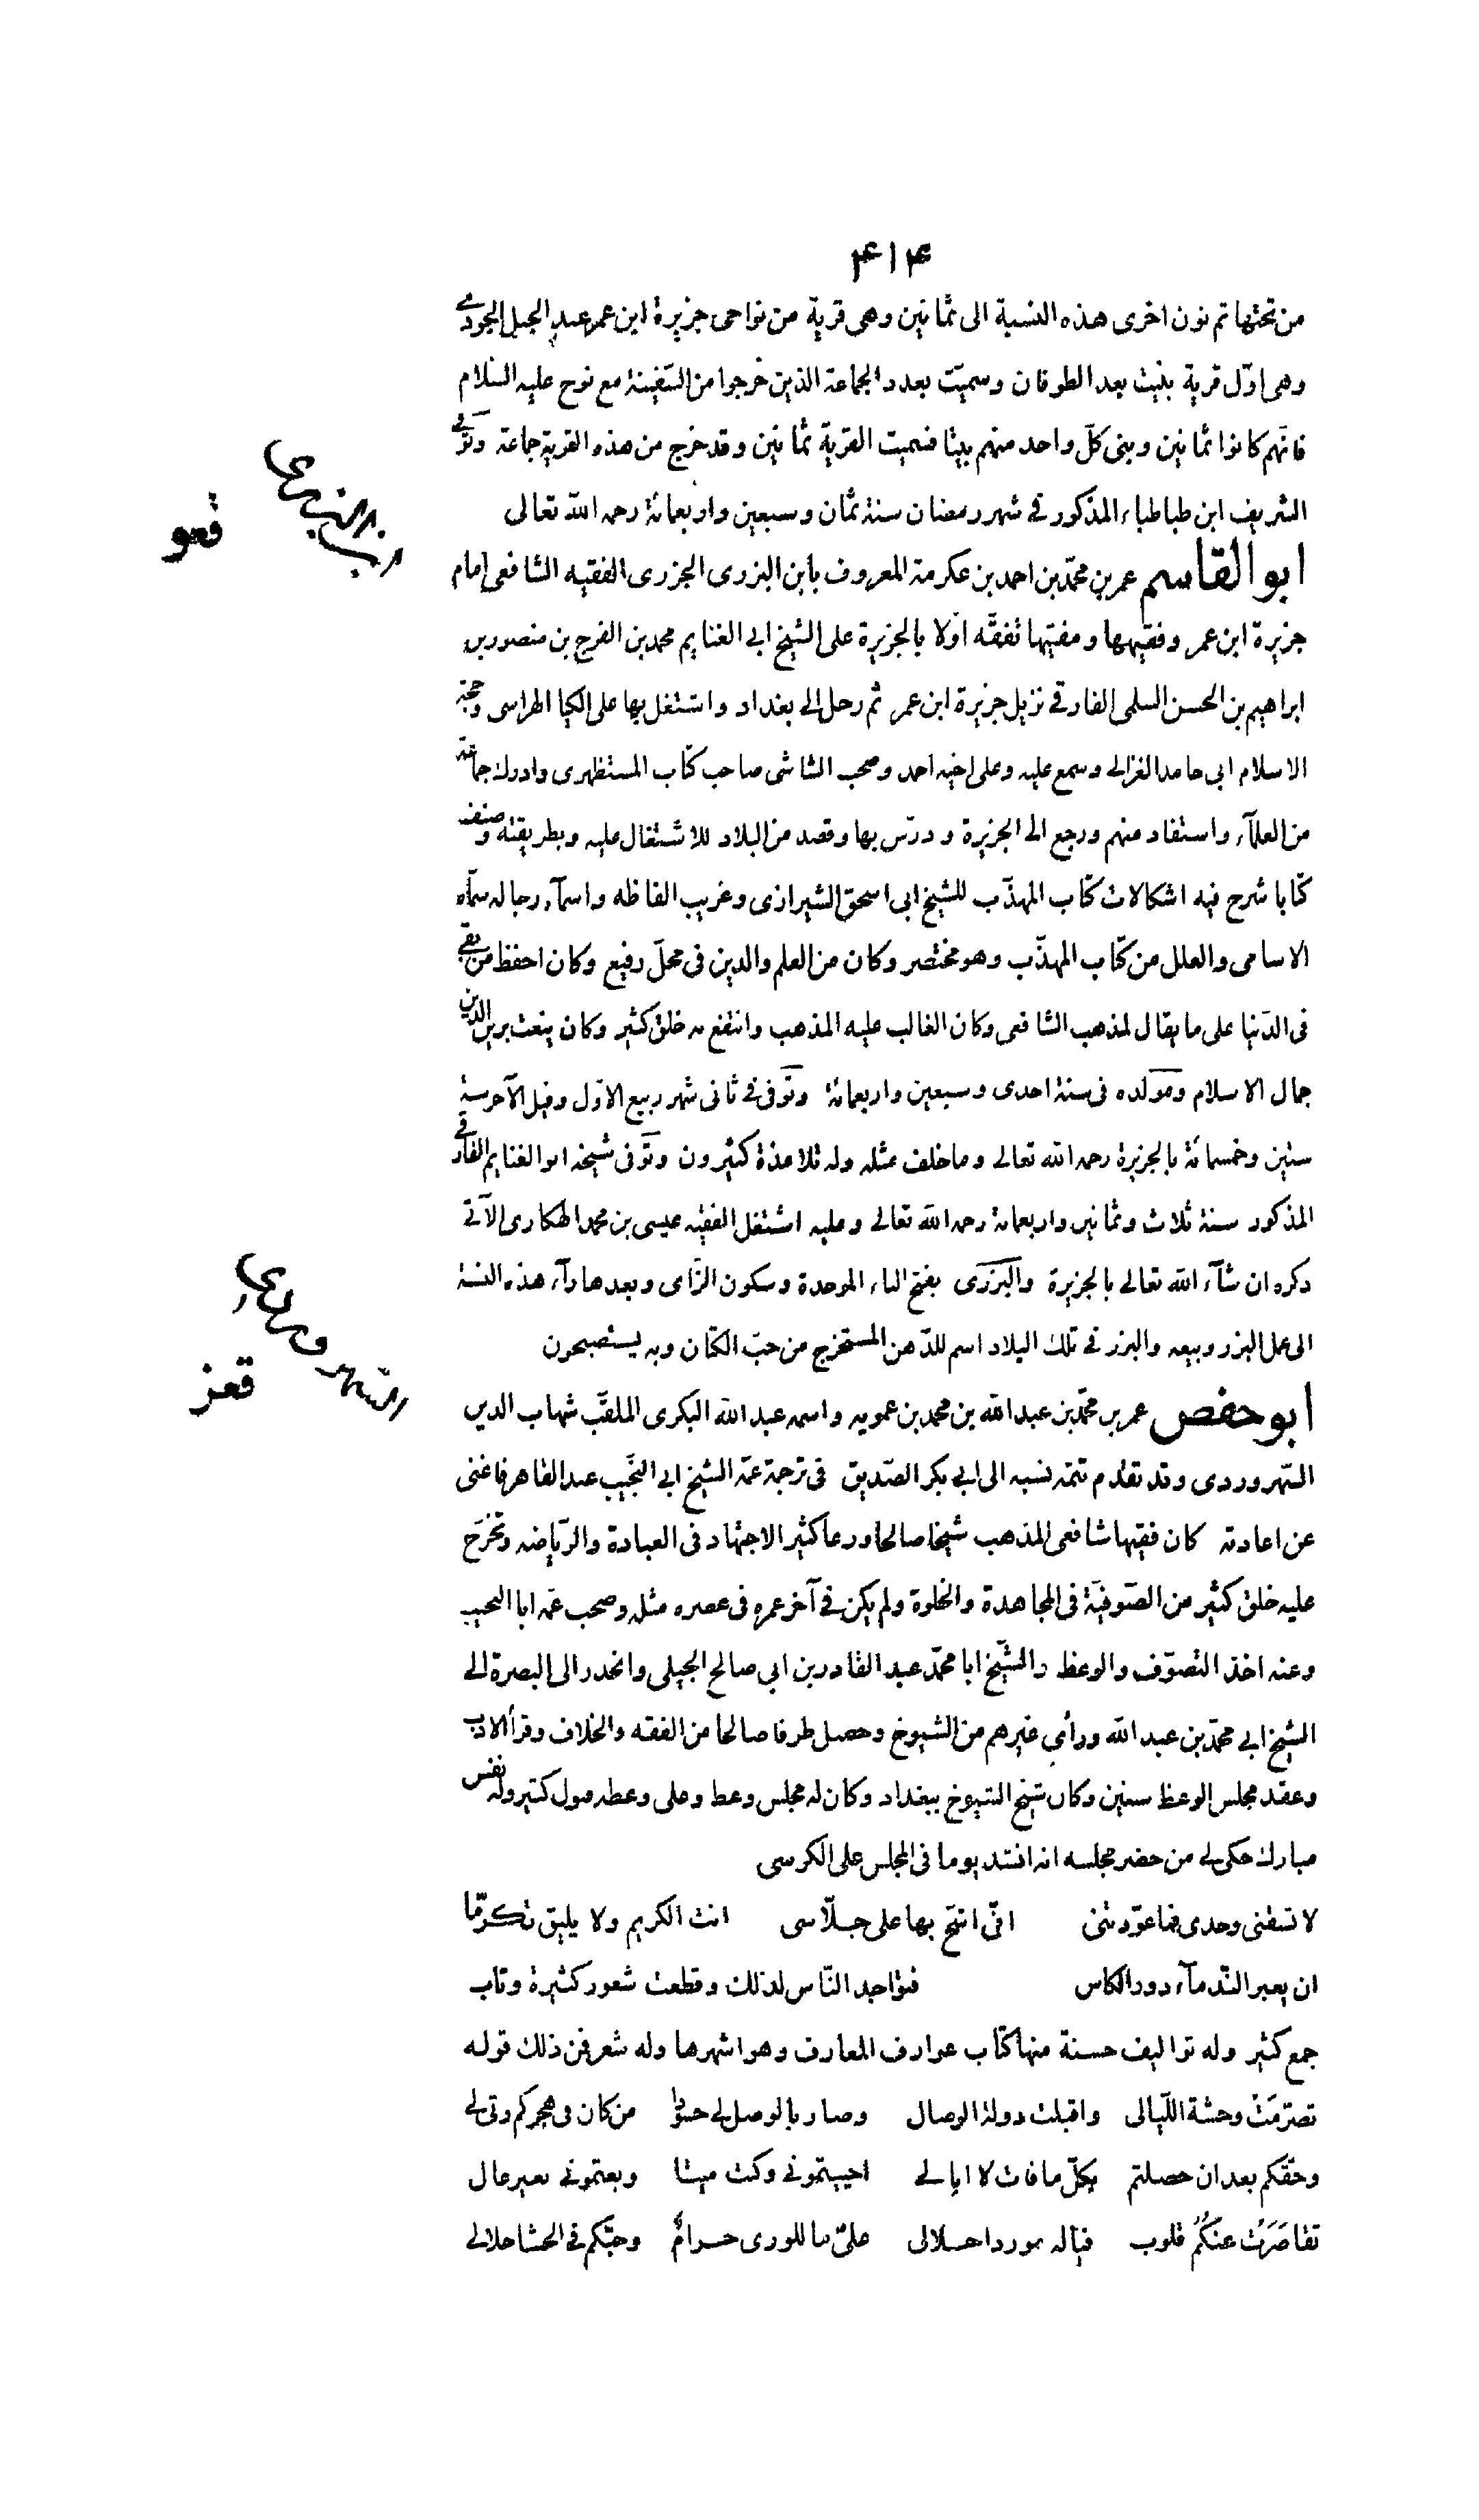 ۴۱۴
من تحتها ثم نون اخرى هذه النسبة الى ثمانين وهى قرية من نواحى جزيرة ابن عمر عند الجبل الجودى
وهى اوّل قرية بنيت بعد الطوفان وسميّت بعدد الجماعة الذين خرجوا من السّفينة مع نوح عليه السلام
فانّهم كانوا ثمانين وبنى كلّ واحد منهم بيتا فسميت القرية ثمانين وقد خرج من هذه القرية جماعة وتوّفى
الشريف ابن طباطباء المذكور فى شهر رمضان سنة ثمان وسبعين واربعمائة رحمه الله تعالى
ابو القاسم عمر بن محمّد بن احمد بن عكرمة المعروف بابن البزرى الجزرى الفقيه الشافعى امام
جزيرة ابن عمر وفقيهها ومفتيها تفقّه اوّلا بالجزيرة على الشيخ ابى الغنايم محمد بن الفرج بن منصور بن
ابراهيم بن الحسن السلمى الفارقى نزيل جزيرة ابن عمر ثم رحل الى بغداد واشتغل بها على الكيا الهراسى وحجّة
الاسلام ابى حامد الغزالى وسمع عليه وعلى اخيه احمد وصحب الشاشى صاحب كتاب المستظهرى وادرك جماعة
من العلمآء واستفاد منهم ورجع الى الجزيرة ودرّس بها وقصد من البلاد للاشتغال عليه وبطريقته وصنف
كتابا شرح فيه اشكالات كتاب المهذّب للشيخ ابى اسحق الشيرازى وغريب الفاظه واسمآء رجاله سمّاه
الاسامى والعلل من كتاب المهذّب وهو مختصر وكان من العلم والدين فى محلّ رفيع وكان احفظ من بقى
فى الدّنيا على ما يقال لمذهب الشافعى وكان الغالب عليه المذهب وانتفع به خلق كثير وكان ينعت بزين الدين
جمال الاسلام ومولده فى سنة احدى وسبعين واربعمائة وتوّفى فى ثانى شهر ربيع الاوّل وقيل الآخر سنة
ستين وخمسمائة بالجزيرة رحمه الله تعالى وما خلف مثله وله تلامذة كثيرون وتوّفى شيخه ابو الغنايم الفارقى
المذكور سنة ثلاث وثمانين واربعمائة رحمه الله تعالى وعليه اشتغل الفقيه عيسى بن محمد الهكارى الآتى
ذكره ان شآء الله تعالى بالجزيرة والبزرى بفتح الباء الموحدة وسكون الزّاى وبعدها رآء هذه النسبة
الى عمل البزر وبيعه والبزر فى تلك البلاد اسم للدّهن المستخرج من حبّ الكتان وبه يستصبحون
ابو حفص عمر بن محمّد بن عبد الله بن محمد بن عمويه واسمه عبد الله البكرى الملقّب شهاب الدين
السّهروردى وقد تقدّم تتمة نسبه الى ابى بكر الصّديق فى ترجمة عمّه الشيخ ابى النجيب عبد القاهر فاغنى
عن اعادته كان فقيها شافعى المذهب شيخا صالحا ورعا كثير الاجتهاد فى العبادة والرّياضه وتخرّج
عليه خلق كثير من الصّوفيّة فى المجاهدة والخلوة ولم يكن فى آخر عمره فى عصره مثله وصحب عمّه ابا النجيب
وعنه اخذ التصوّف والوعظ والشّيخ ابا محمّد عبد القادر بن ابى صالح الجيلى وانحدر الى البصرة الى
الشيخ ابى محمّد بن عبد الله ورأى غيرهم من الشيوخ وحصل طرفا صالحا من الفقه والخلاف وقرأ الادب
وعقد مجلس الوعظ سنين وكان شيخ الشيوخ ببغداد وكان له مجلس وعظ وعلى وعظه قبول كثير وله نفس
مبارك حكى لى من حضر مجلسه انه انشد يوما فى المجلس على الكرسى
لا تسقنى وحدى فما عوّدتنى انّى اشحّ بها على جلّاسى انت الكريم ولا يليق تكرّما
ان يعبر النّدمآء دور الكاس فتواجد النّاس لذلك وقطعت شعور كثيرة وتاب
جمع كثير وله تواليف حسنة منها كتاب عوارف المعارف وهو اشهرها وله شعر فمن ذلك قوله
تصرّمَتْ وحشة اللّيالى واقبلت دولة الوصال وصار بالوصل لى حسودا من كان فى هجركم رثى لى
وحقّكم بعد ان حصلتم بكلّ ما فات لا ابالى احييتمونى وكنت ميتا وبعتمونى بغير غال
تقاصَرَتْ عنكُم قلوب فياله موردا حلالى علىّ ما للورى حرامٌ وحبّكم فى الحشا حلالى
ابن البزرى
قعو
السهروردى
قعز